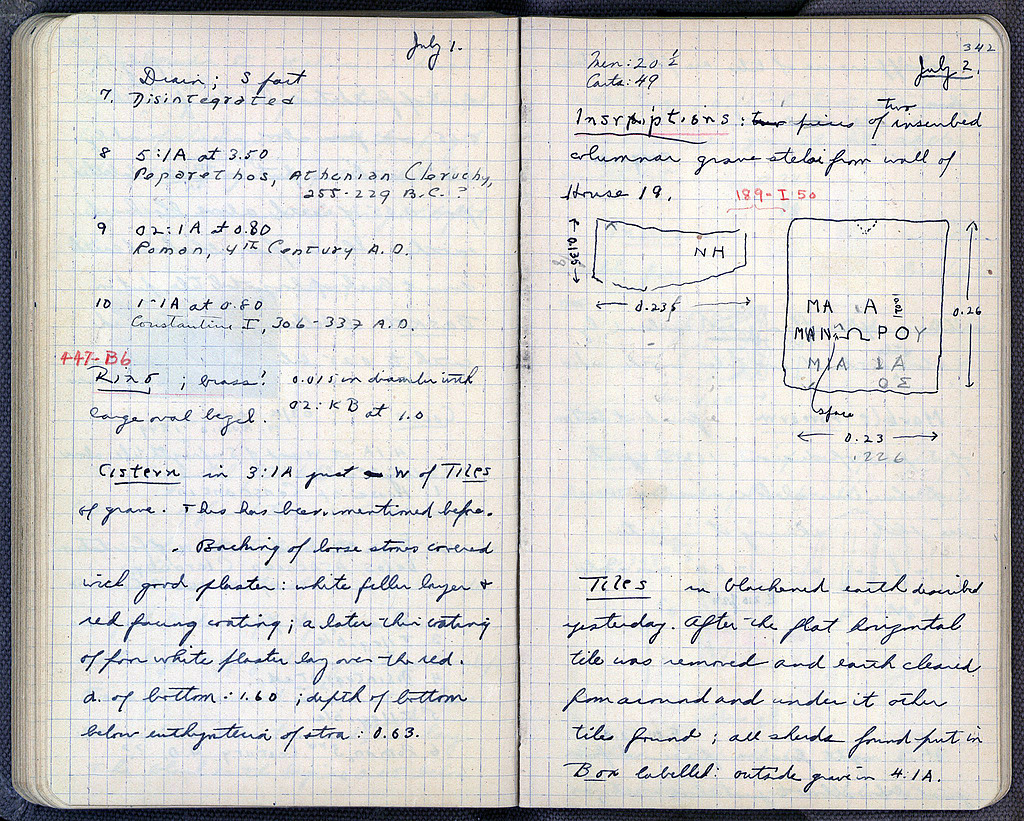 July 1.
Drain; S part
7. Disintegrated
8 5:1A at 3.50
Peparethos, Athenian Cleruchy,
255-229 B.C.?
9 02:1A at 0.80
Roman, 4TH Century A.D.
10 1-1A at 0.80
Constantine I, 306-337 A.D.
447-B6
Ring; brass? 0.015 in diameter with
large oval bezel. 02:KB at 1.0
Cistern in 3:1A just W of Tiles
of grave. This has been mentioned before.
. Backing of loose stones covered
with good plaster: white filler layer +
red facing coating; a later thin coating
of poor white plaster lay over the red.
d. of bottom: 1.60; depth of bottom
below euthynteria of stoa: 0.63.
342
Men: 20 1/2
Carts: 49
July 2.
Inscriptions: two pieces of two inscribed
columnar grave stelai from wall of
House 19.
189-I 50
0.135
NH
0.235
MA A
MAN Ω POY
MIA IA
ΟΣ
0.26
space
0.23
.226
Tiles in blackened earth described
yesterday. After the flat horizontal
tile was removed and earth cleared
from around and under it other
tiles found; all sherds found put in
Box labelled: outside grave in 4:1A.